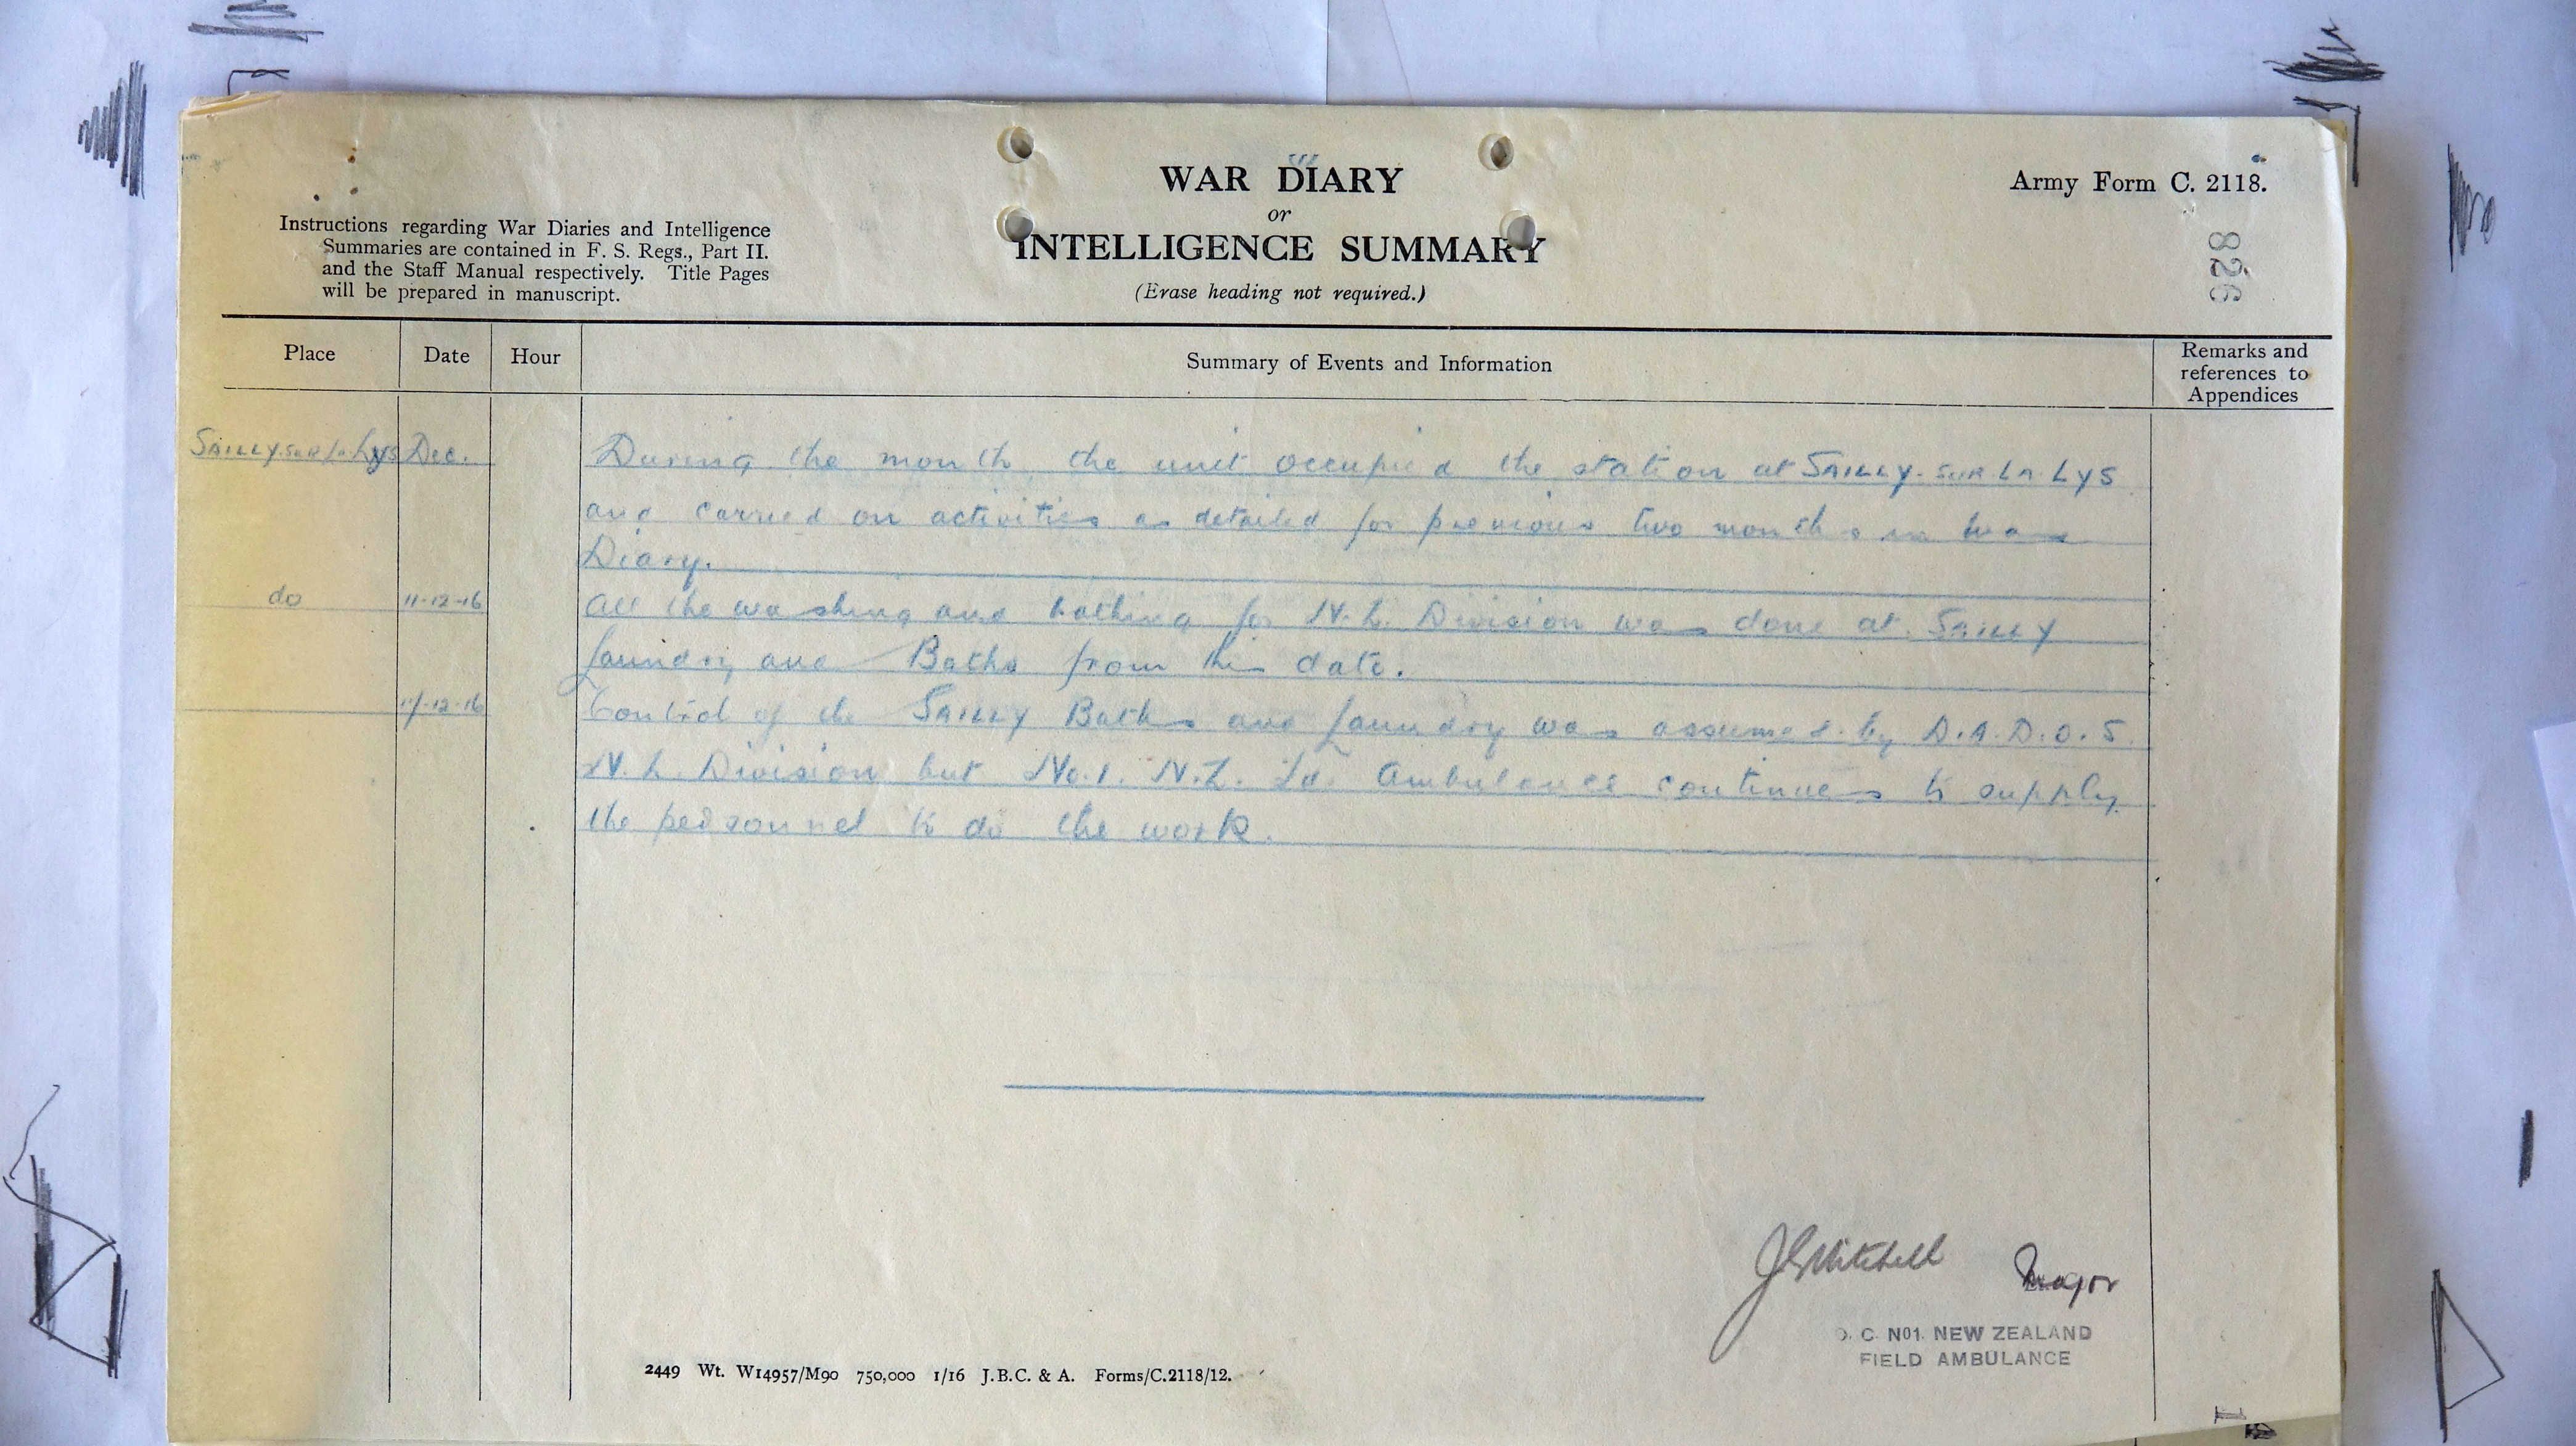 WAR DIARY
or
INTELLIGENCE SUMMARY
(Erase heading not required.)
Army Form C. 2118.
Instructions regarding War Diaries and Intelligence
Summaries are contained in F. S. Regs., Part II.
and the Staff Manual respectively. Title Pages
will be prepared in manuscript.
826
Place Date Hour Summary of Events and Information Remarks and references to Appendices
SAILLY-SUR-la-Lys Dec. During the month the unit occupied the station at SAILLY-SUR-LA-LYS
and carried on activities as detailed for previous two months in War
Diary.
do 11-12-16 All the washing and bathing for N.Z. Division was done at SAILLY
Laundry and Baths from this date.
-12-16 Control of the SAILLY Baths and Laundry was assumed by D.A.D.O.S.
N.Z. Division but No.1. N.Z. Fd. Ambulance continues to supply
the personnel to do the work.
JGMitchell Major
O. C. No1. NEW ZEALAND
FIELD AMBULANCE
2449 Wt. W14957/M90 750,000 1/16 J.B.C. & A. Forms/C.2118/12.